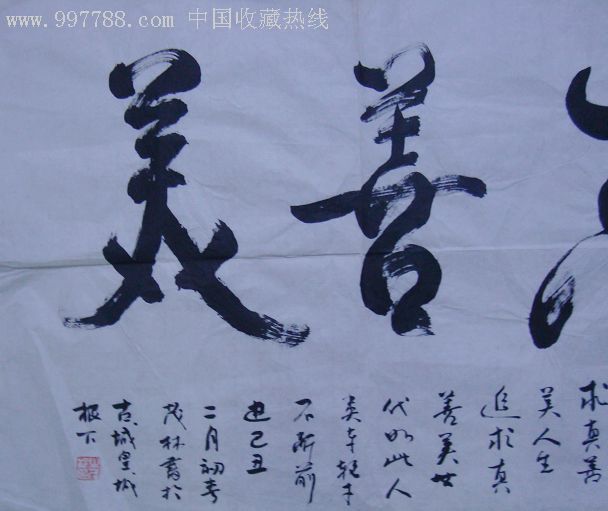 www.997788.com 中国收藏热线
善美
求真善
美人生
追求真
善美世
代如此人
类车轮才
不断前
进己丑
二月初春
茂林书于
古城皇城
根下